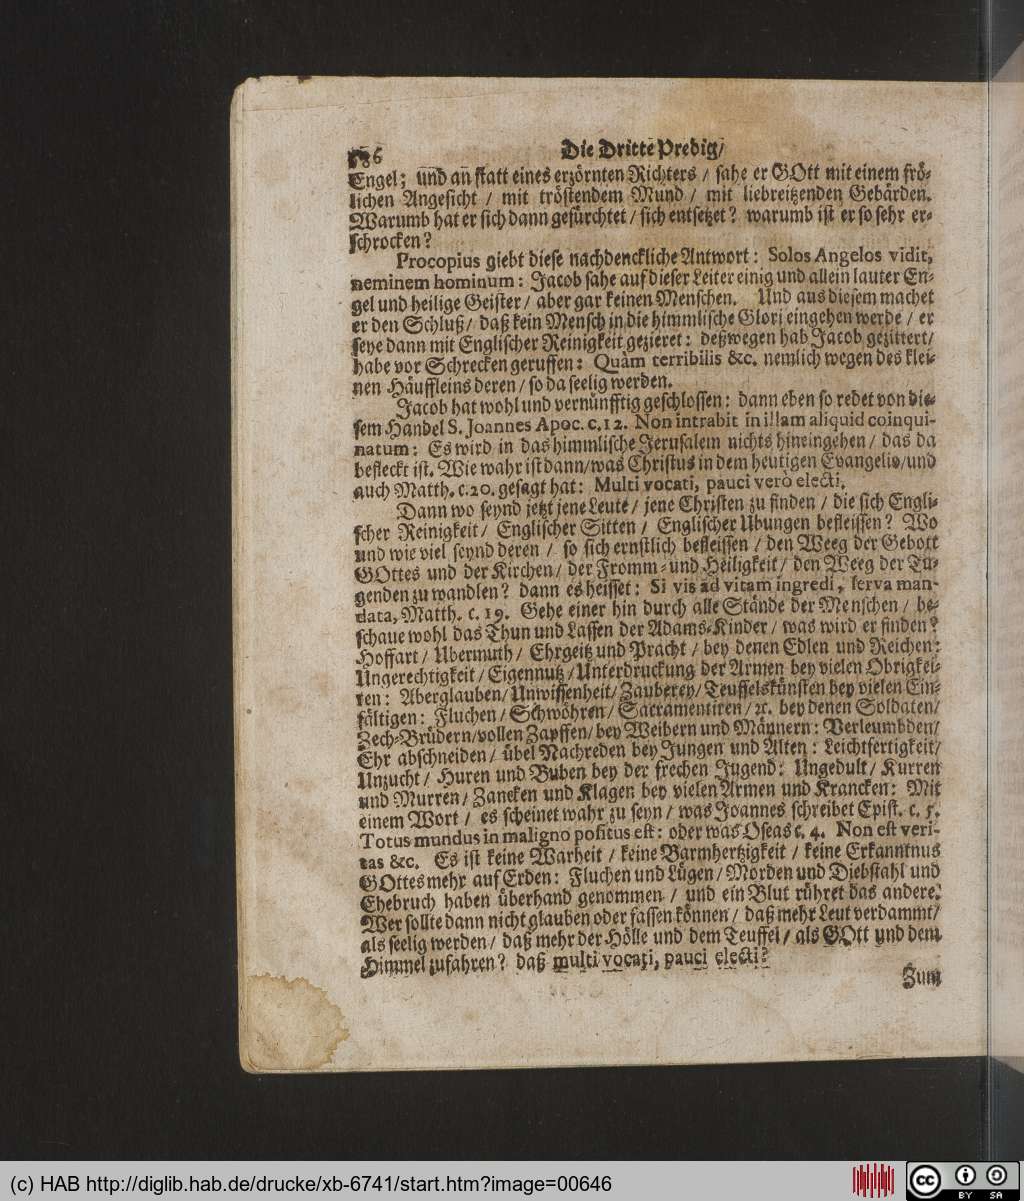 Die Dritte Predig/
Engel; und an statt eines erzörnten Richters / sahe er GOtt mit einem frö-
lichen Angesicht / mit tröstendem Mund / mit liebreitzenden Gebärden.
Warumb hat er sich dann geförchtet / sich entsetzet? warumb ist er so sehr er-
schrocken?
Procopius giebt diese nachdenckliche Antwort: Solos Angelos vidit,
neminem hominum: Jacob sahe auf dieser Leiter einig und allein lauter En-
gel und heilige Geister / aber gar keinen Menschen. Und aus diesem machet
er den Schluß / daß kein Mensch in die himmlische Glori eingehen werde / er
seye dann mit Englischer Reinigkeit gezieret: deßwegen hab Jacob gezittert/
habe vor Schrecken geruffen: Quàm terribilis &c. nemlich wegen des klei-
nen Häuffleins deren / so da seelig werden.
Jacob hat wohl und vernünfftig geschlossen: dann eben so redet von die-
sem Handel S. Joannes Apoc. c. 12. Non intrabit in illam aliquid coinqui-
natum: Es wird in das himmlische Jerusalem nichts hineingehen / das da
befleckt ist. Wie wahr ist dann/was Christus in dem heutigen Evangelio/und
auch Matth. c. 20. gesagt hat: Multi vocati, pauci verò electi.
Dann wo seynd jetzt jene Leute / jene Christen zu finden / die sich Engli-
scher Reinigkeit / Englischer Sitten / Englischer Ubungen befleissen? Wo
und wie viel seynd deren / so sich ernstlich befleissen / den Weeg der Gebott
GOttes und der Kirchen / der Fromm- und Heiligkeit / den Weeg der Tu-
genden zu wandlen? dann es heisset: Si vis ad vitam ingredi, serva man-
data, Matth. c. 19. Gehe einer hin durch alle Stände der Menschen / be-
schaue wohl das Thun und Lassen der Adams-Kinder / was wird er finden?
Hoffart / Ubermuth / Ehrgeitz und Pracht / bey denen Edlen und Reichen:
Ungerechtigkeit / Eigennutz / Unterdruckung der Armen bey vielen Obrigkei-
ten: Aberglauben / Unwissenheit / Zauberey / Teuffelskünsten bey vielen Ein-
fältigen: Fluchen / Schwöhren / Sacramentiren / ꝛc. bey denen Soldaten/
Zech-Brüdern/vollen Zapffen/ bey Weibern und Männern: Verleumbden/
Ehr abschneiden / übel Nachreden bey Jungen und Alten: Leichtfertigkeit/
Unzucht / Huren und Buben bey der frechen Jugend: Ungedult / Kurren
und Murren / Zancken und Klagen bey vielen Armen und Krancken: Mit
einem Wort / es scheinet wahr zu seyn / was Joannes schreibet Epist. c. 5.
Totus mundus in maligno positus est: oder was Oseas c. 4. Non est veri-
tas &c. Es ist keine Warheit / keine Barmhertzigkeit / keine Erkanntnus
GOttes mehr auf Erden: Fluchen und Lügen / Morden und Diebstahl und
Ehebruch haben überhand genommen / und ein Blut rühret das andere.
Wer sollte dann nicht glauben oder fassen können / daß mehr Leut verdammt/
als seelig werden / daß mehr der Hölle und dem Teuffel / als GOtt und dem
Himmel zufahren? daß multi vocati, pauci electi?
Zum
(c) HAB http://diglib.hab.de/drucke/xb-6741/start.htm?image=00646
cc BY SA